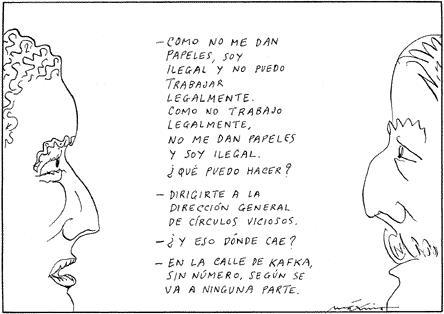 – COMO NO ME DAN
PAPELES, SOY
ILEGAL Y NO PUEDO
TRABAJAR
LEGALMENTE.
COMO NO TRABAJO
LEGALMENTE,
NO ME DAN PAPELES
Y SOY ILEGAL.
¿QUÉ PUEDO HACER?
– DIRIGIRTE A LA
DIRECCIÓN GENERAL
DE CÍRCULOS VICIOSOS.
– ¿Y ESO DÓNDE CAE?
– EN LA CALLE DE KAFKA,
SIN NÚMERO, SEGÚN SE
VA A NINGUNA PARTE.
máximo